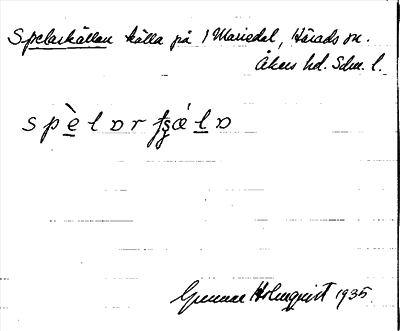 Spelarkällan källa på 1 Mariedal, Härads sn.
Åkers hd. Sdm. l.
spèlɒr ʃʒǽlɒ
Gunnar Holmquist 1935